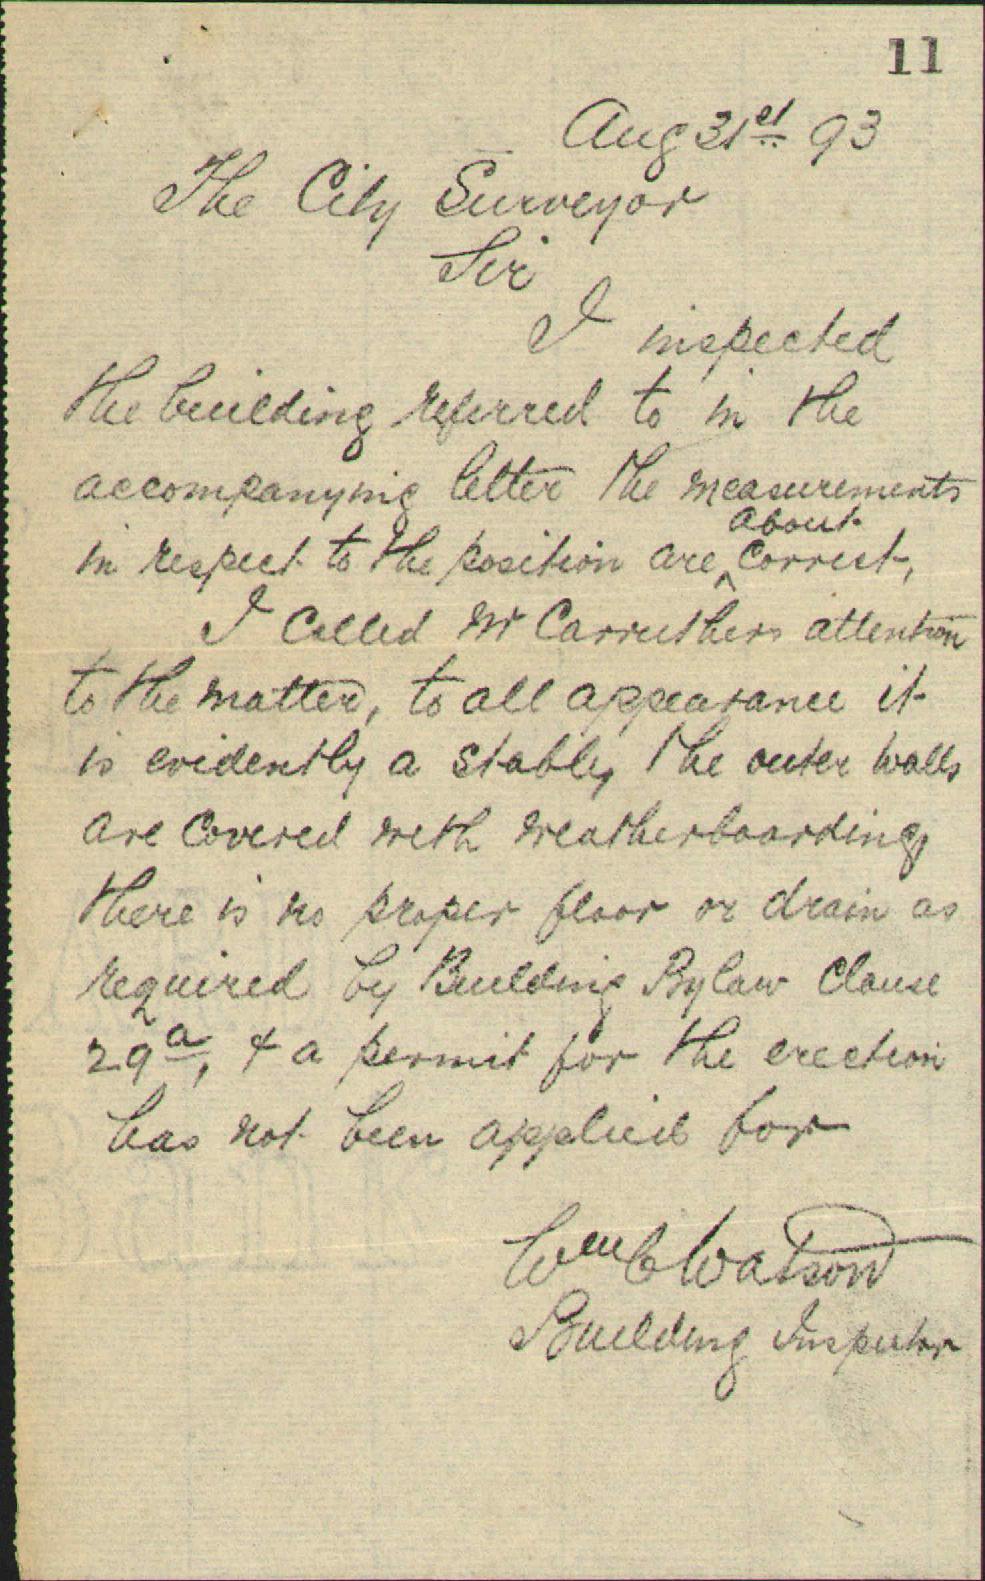 11
Aug 31st 93
The City Surveyor
Sir
I inspected
the building referred to in the
accompanying letter the measurements
About
in respect to the position are ^ Correct,
I Called Mr Carruthers attention
to the matter, to all appearance it
is evidently a stable, the outer walls
are Covered with weatherboarding,
there is no proper floor or drain as
required by Building Bylaw Clause
29a, & a permit for the erection
has not been applied for
Wm C Watson
Building Inspector